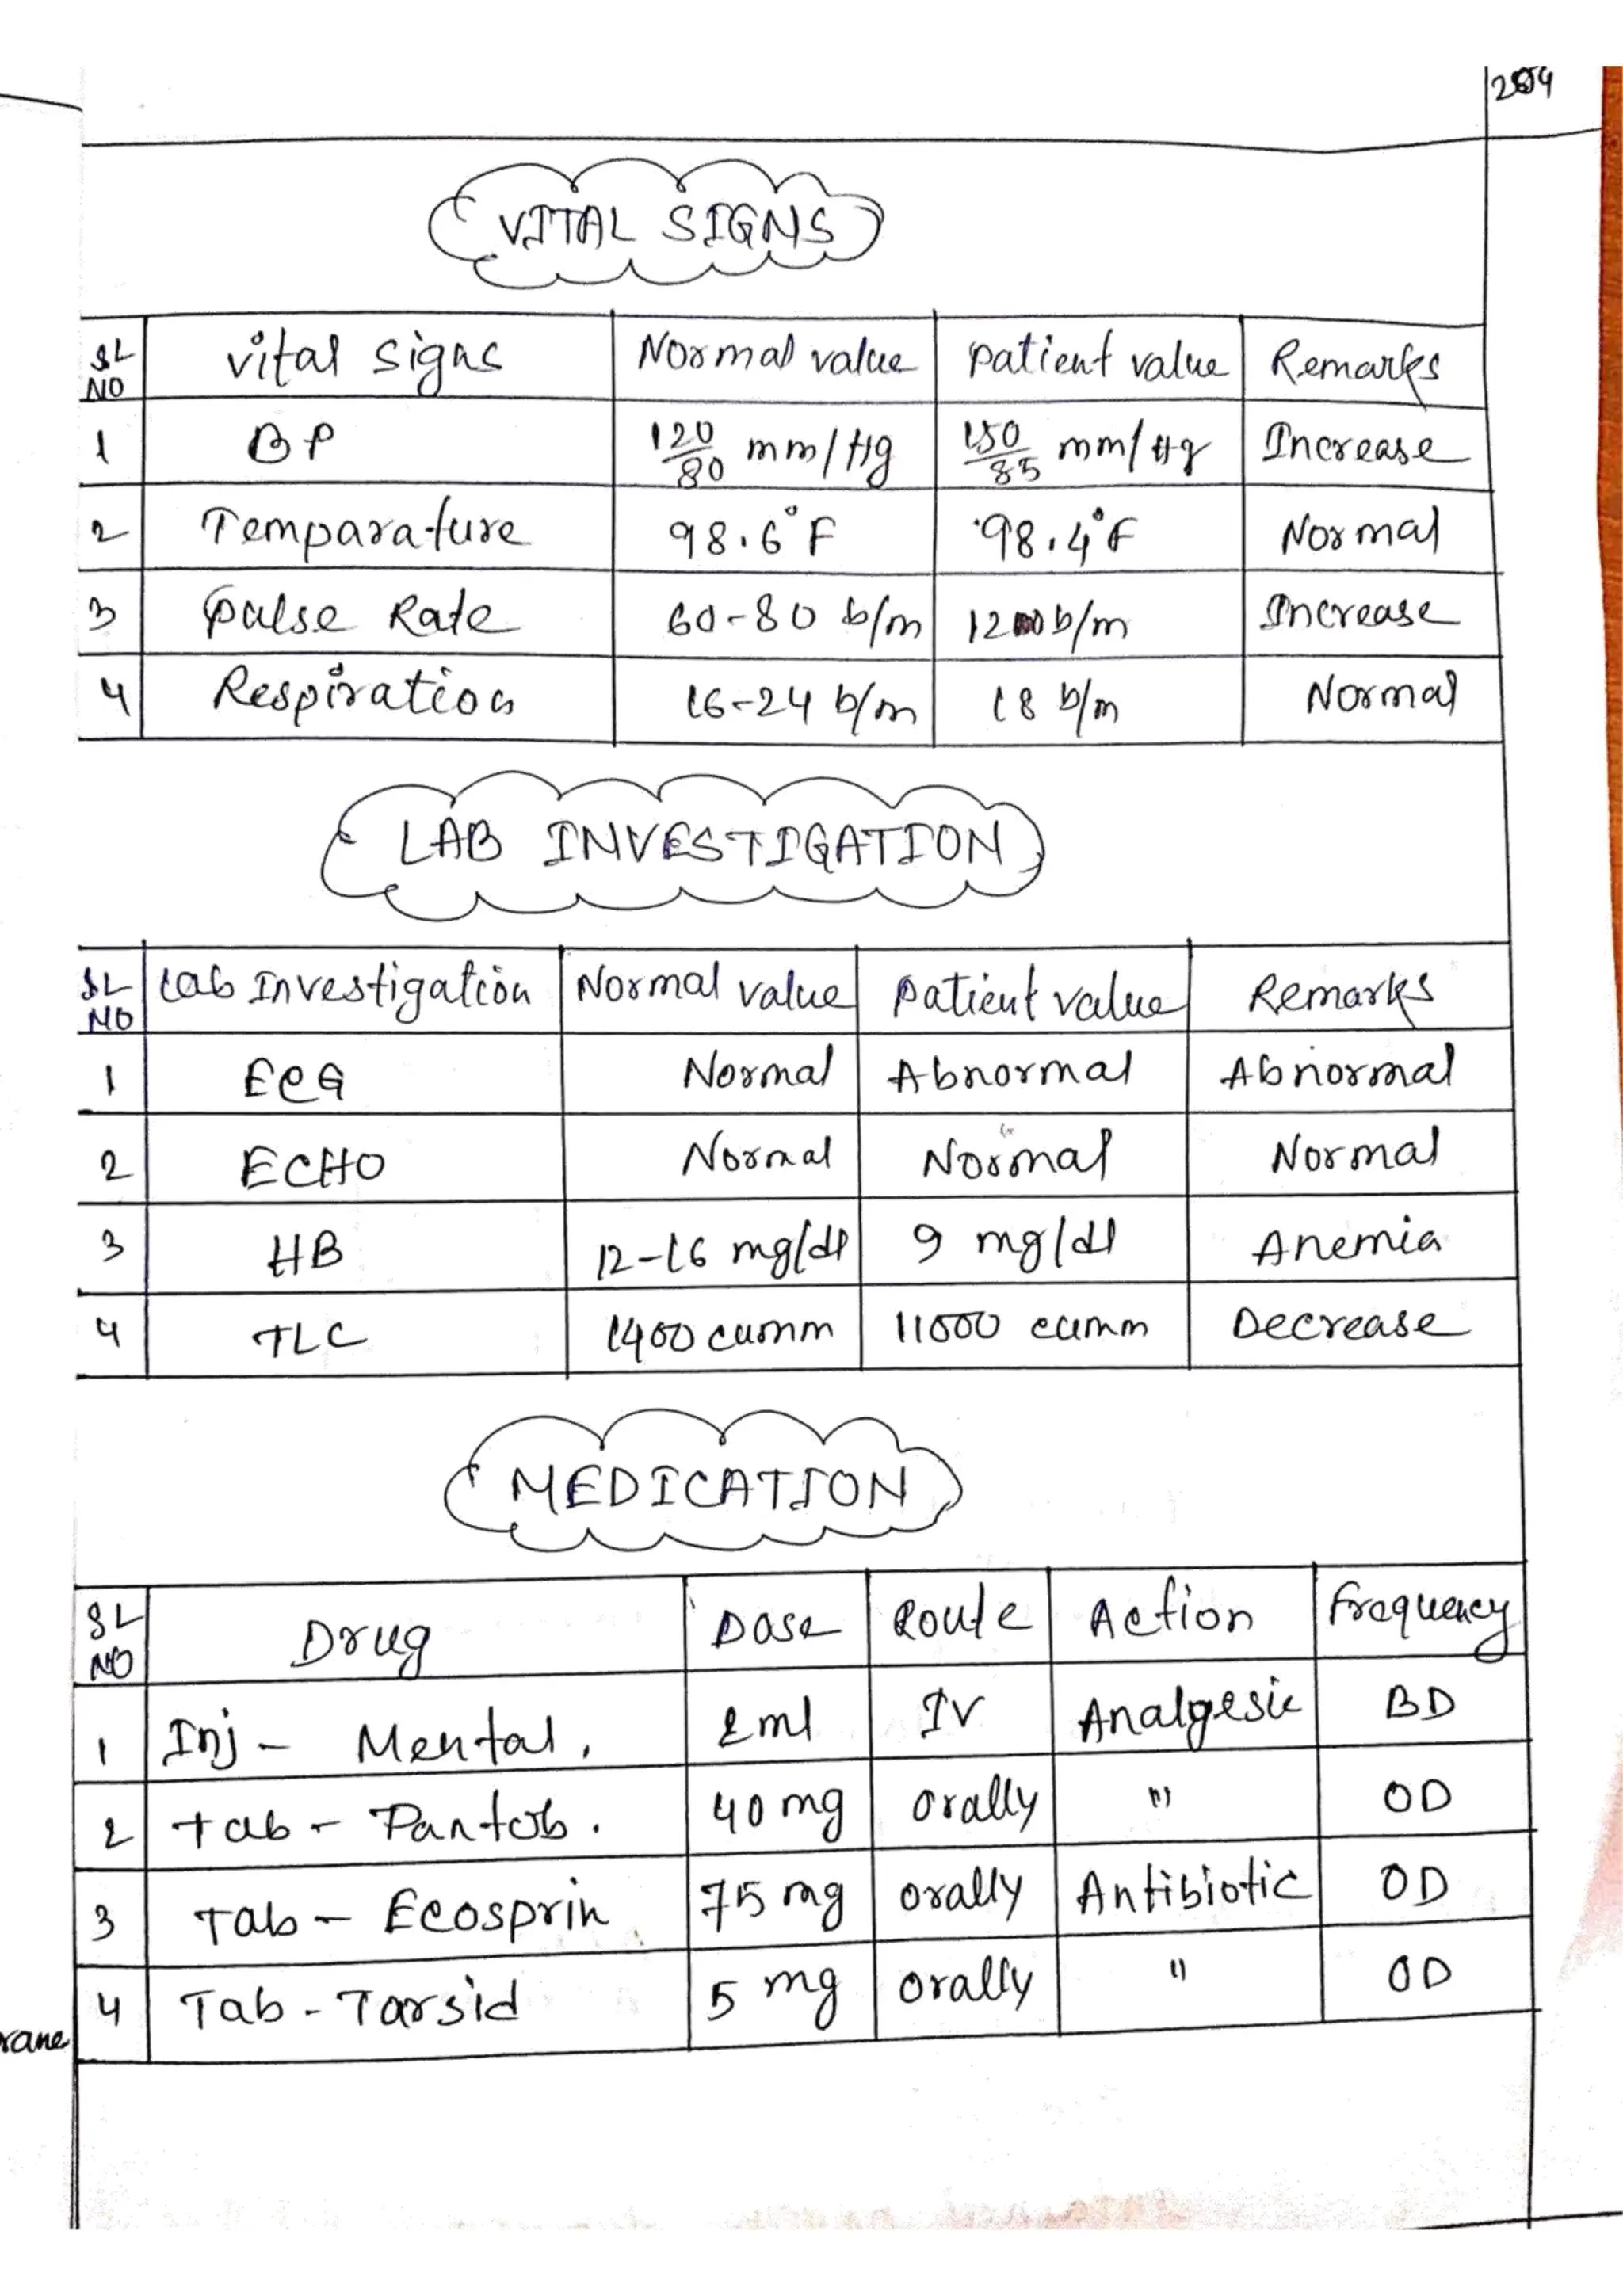 204
VITAL SIGNS
SL NO vital signs Normal value patient value Remarks
1 BP 120/80 mm/Hg 150/85 mm/Hg Increase
2 Temparature 98.6°F 98.4°F Normal
3 pulse Rate 60-80 b/m b/m Increase
4 Respiration 16-24 b/m 18 b/m Normal
LAB INVESTIGATION
SL NO Lab Investigation Normal value patient value Remarks
1 ECG Normal Abnormal Abnormal
2 ECHO Normal Normal Normal
3 HB 12-16 mg/dl 9 mg/dl Anemia
4 TLC 1400 cumm 11000 cumm Decrease
MEDICATION
SL NO Drug Dose Route Action frequency
1 Inj - Mental. 2ml IV Analgesic BD
2 tab - Pantob. 40 mg orally " OD
3 Tab - Ecosprin 75 mg orally Antibiotic OD
4 Tab - Tarsid 5 mg orally " OD
rane